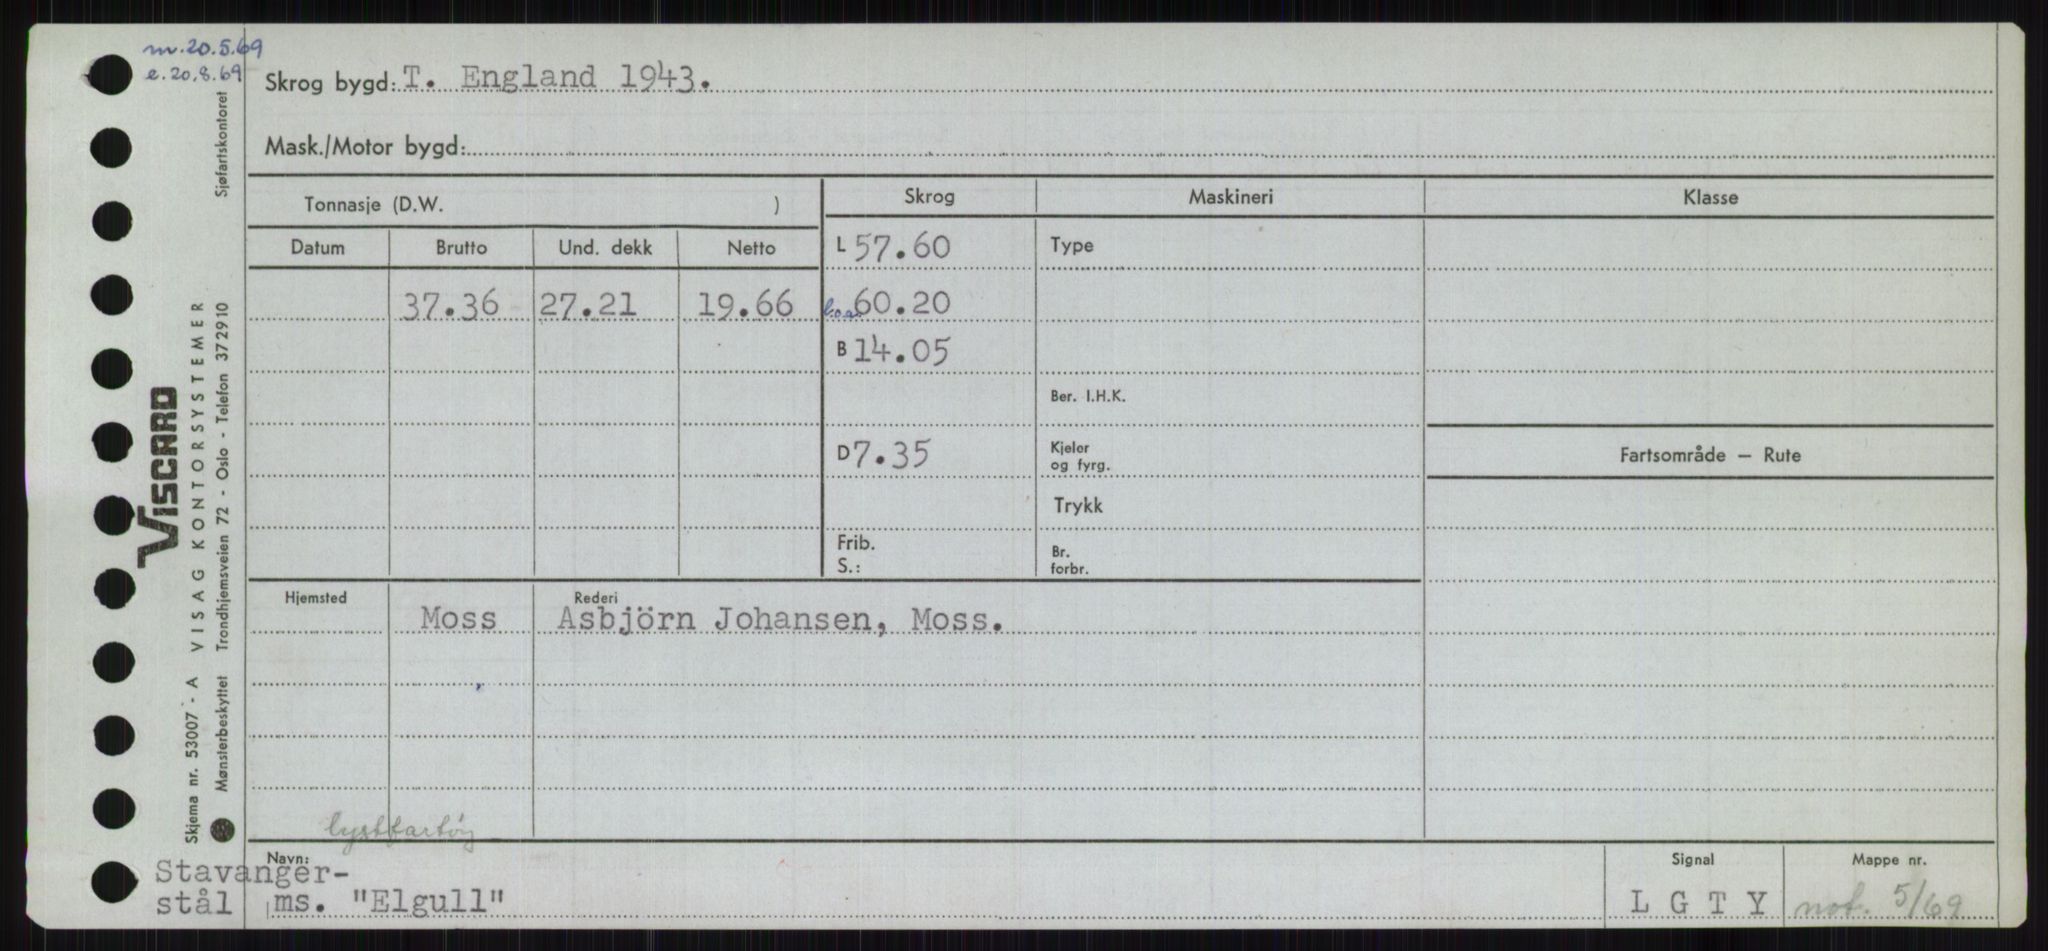 m.20.5.69
e.20.8.69
Skrog bygd: T. England 1943.
Mask./Motor bygd:
Tonnasje (D.W. )
Skrog
Maskineri
Klasse
Datum
Brutto
Und. dekk
Netto
L 57.60
Type
37.36
27.21
19.66
l.o.a. 60.20
B 14.05
Ber. I.H.K.
D 7.35
Kjeler
og fyrg.
Fartsområde — Rute
Trykk
Frib.
S.:
Br.
forbr.
Hjemsted
Rederi
Moss
Asbjörn Johansen, Moss.
lystfartøy
Navn:
Stavanger-
stål
ms. "Elgull"
Signal
L G T Y
Mappe nr.
not. 5/69
Skjema nr. 53007 - A VISAG KONTORSYSTEMER
Mønsterbeskyttet Trondhjemsveien 72 - Oslo - Telefon 372910 Sjøfartskontoret
VISCARD